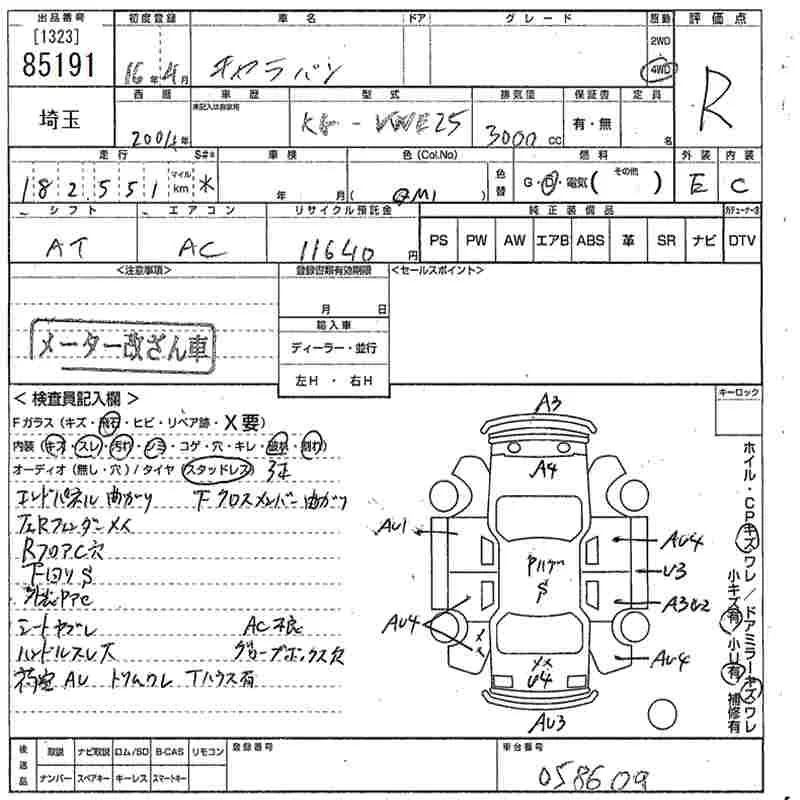 出品番号 初度登録 車名 ドア グレード 駆動 評価点
[1323]
85191
16年4月 キャラバン 2WD 4WD R
埼玉
西暦 車歴 型式 排気量 保証書 定員
未記入は自家用
年 KH-VWE25 3000cc 有・無 名
走行 S#* 車検 色(Col.No) 燃料 外装 内装
182,551 マイル km * 年 月 ( QM1 ) 色替 G・D・電気( その他 ) E C
シフト エアコン リサイクル預託金 純正装備品
AT AC 11640円 PS PW AW エアB ABS 革 SR ナビ DTV
<注意事項> 登録書類有効期限 <セールスポイント>
月 日
輸入車
メーター改ざん車
ディーラー・並行
左H・右H
<検査員記入欄> キーロック
Fガラス(キズ・飛石・ヒビ・リペア跡・X要)
内装(キズ・スレ・汚れ・シミ・コゲ・穴・キレ・破れ・割れ)
オーディオ(無し・穴)/タイヤ(スタッドレス)
エンドパネル曲がり 下クロスメンバー曲がり
RフロアC穴
下回りS
シートヤブレ AC不良
ハンドルスレ大 グローブボックス穴
荷室AU トリムワレ Tハウス有
A3
A4
AU1 AU4
U3
S
A3U2
AU4
AU4
U4
AU3
ホイル・CPキズワレ/ドアミラーキズワレ
小キズ有 小U有 補修有
後送品 取説 ナビ取説 ロム/SD B-CAS リモコン 登録番号 車台番号
ナンバー スペアキー キーレス スマートキー
058609